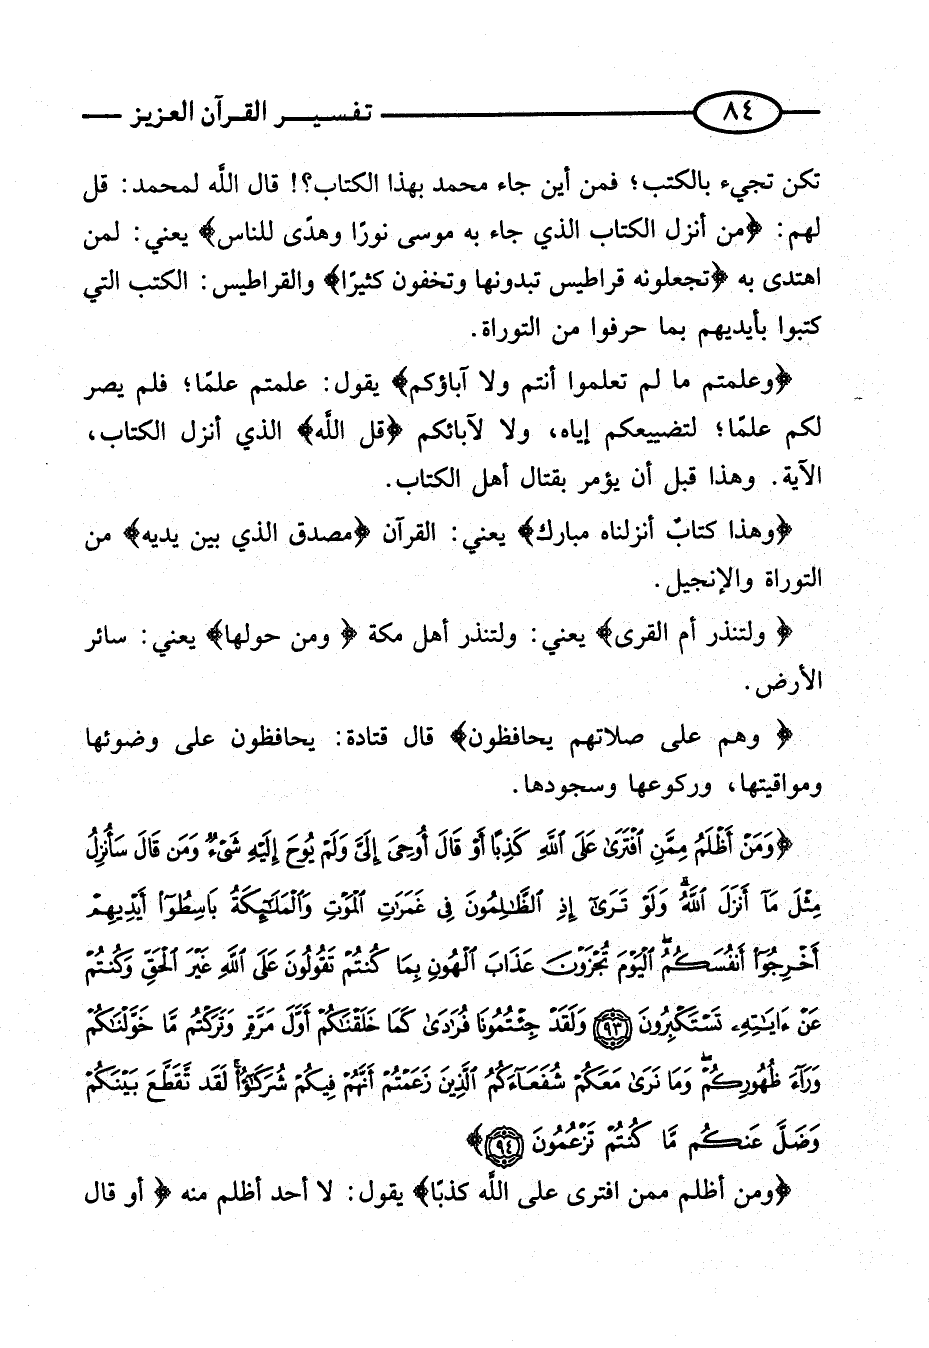 ٨٤ تفسير القرآن العزيز
تكن تجيء بالكتب؛ فمن أين جاء محمد بهذا الكتاب؟! قال الله لمحمد: قل
لهم: ﴿من أنزل الكتاب الذي جاء به موسى نورًا وهدًى للناس﴾ يعني: لمن
اهتدى به ﴿تجعلونه قراطيس تبدونها وتخفون كثيرًا﴾ والقراطيس: الكتب التي
كتبوا بأيديهم بما حرفوا من التوراة.
﴿وعلمتم ما لم تعلموا أنتم ولا آباؤكم﴾ يقول: علمتم علمًا؛ فلم يصر
لكم علمًا؛ لتضييعكم إياه، ولا لآبائكم ﴿قل الله﴾ الذي أنزل الكتاب،
الآية. وهذا قبل أن يؤمر بقتال أهل الكتاب.
﴿وهذا كتابٌ أنزلناه مبارك﴾ يعني: القرآن ﴿مصدق الذي بين يديه﴾ من
التوراة والإنجيل.
﴿ ولتنذر أم القرى﴾ يعني: ولتنذر أهل مكة ﴿ ومن حولها﴾ يعني: سائر
الأرض.
﴿ وهم على صلاتهم يحافظون﴾ قال قتادة: يحافظون على وضوئها
ومواقيتها، وركوعها وسجودها.
﴿وَمَنْ أَظْلَمُ مِمَّنِ ٱفْتَرَىٰ عَلَى ٱللَّهِ كَذِبًا أَوْ قَالَ أُوحِىَ إِلَىَّ وَلَمْ يُوحَ إِلَيْهِ شَىْءٌ وَمَن قَالَ سَأُنزِلُ
مِثْلَ مَآ أَنزَلَ ٱللَّهُ ۗ وَلَوْ تَرَىٰٓ إِذِ ٱلظَّٰلِمُونَ فِى غَمَرَٰتِ ٱلْمَوْتِ وَٱلْمَلَٰٓئِكَةُ بَاسِطُوٓا۟ أَيْدِيهِمْ
أَخْرِجُوٓا۟ أَنفُسَكُمُ ۖ ٱلْيَوْمَ تُجْزَوْنَ عَذَابَ ٱلْهُونِ بِمَا كُنتُمْ تَقُولُونَ عَلَى ٱللَّهِ غَيْرَ ٱلْحَقِّ وَكُنتُمْ
عَنْ ءَايَٰتِهِۦ تَسْتَكْبِرُونَ ٩٣ وَلَقَدْ جِئْتُمُونَا فُرَٰدَىٰ كَمَا خَلَقْنَٰكُمْ أَوَّلَ مَرَّةٍ وَتَرَكْتُم مَّا خَوَّلْنَٰكُمْ
وَرَآءَ ظُهُورِكُمْ ۖ وَمَا نَرَىٰ مَعَكُمْ شُفَعَآءَكُمُ ٱلَّذِينَ زَعَمْتُمْ أَنَّهُمْ فِيكُمْ شُرَكَٰٓؤُا۟ ۚ لَقَد تَّقَطَّعَ بَيْنَكُمْ
وَضَلَّ عَنكُم مَّا كُنتُمْ تَزْعُمُونَ ٩٤﴾
﴿ومن أظلم ممن افترى على الله كذبًا﴾ يقول: لا أحد أظلم منه ﴿ أو قال